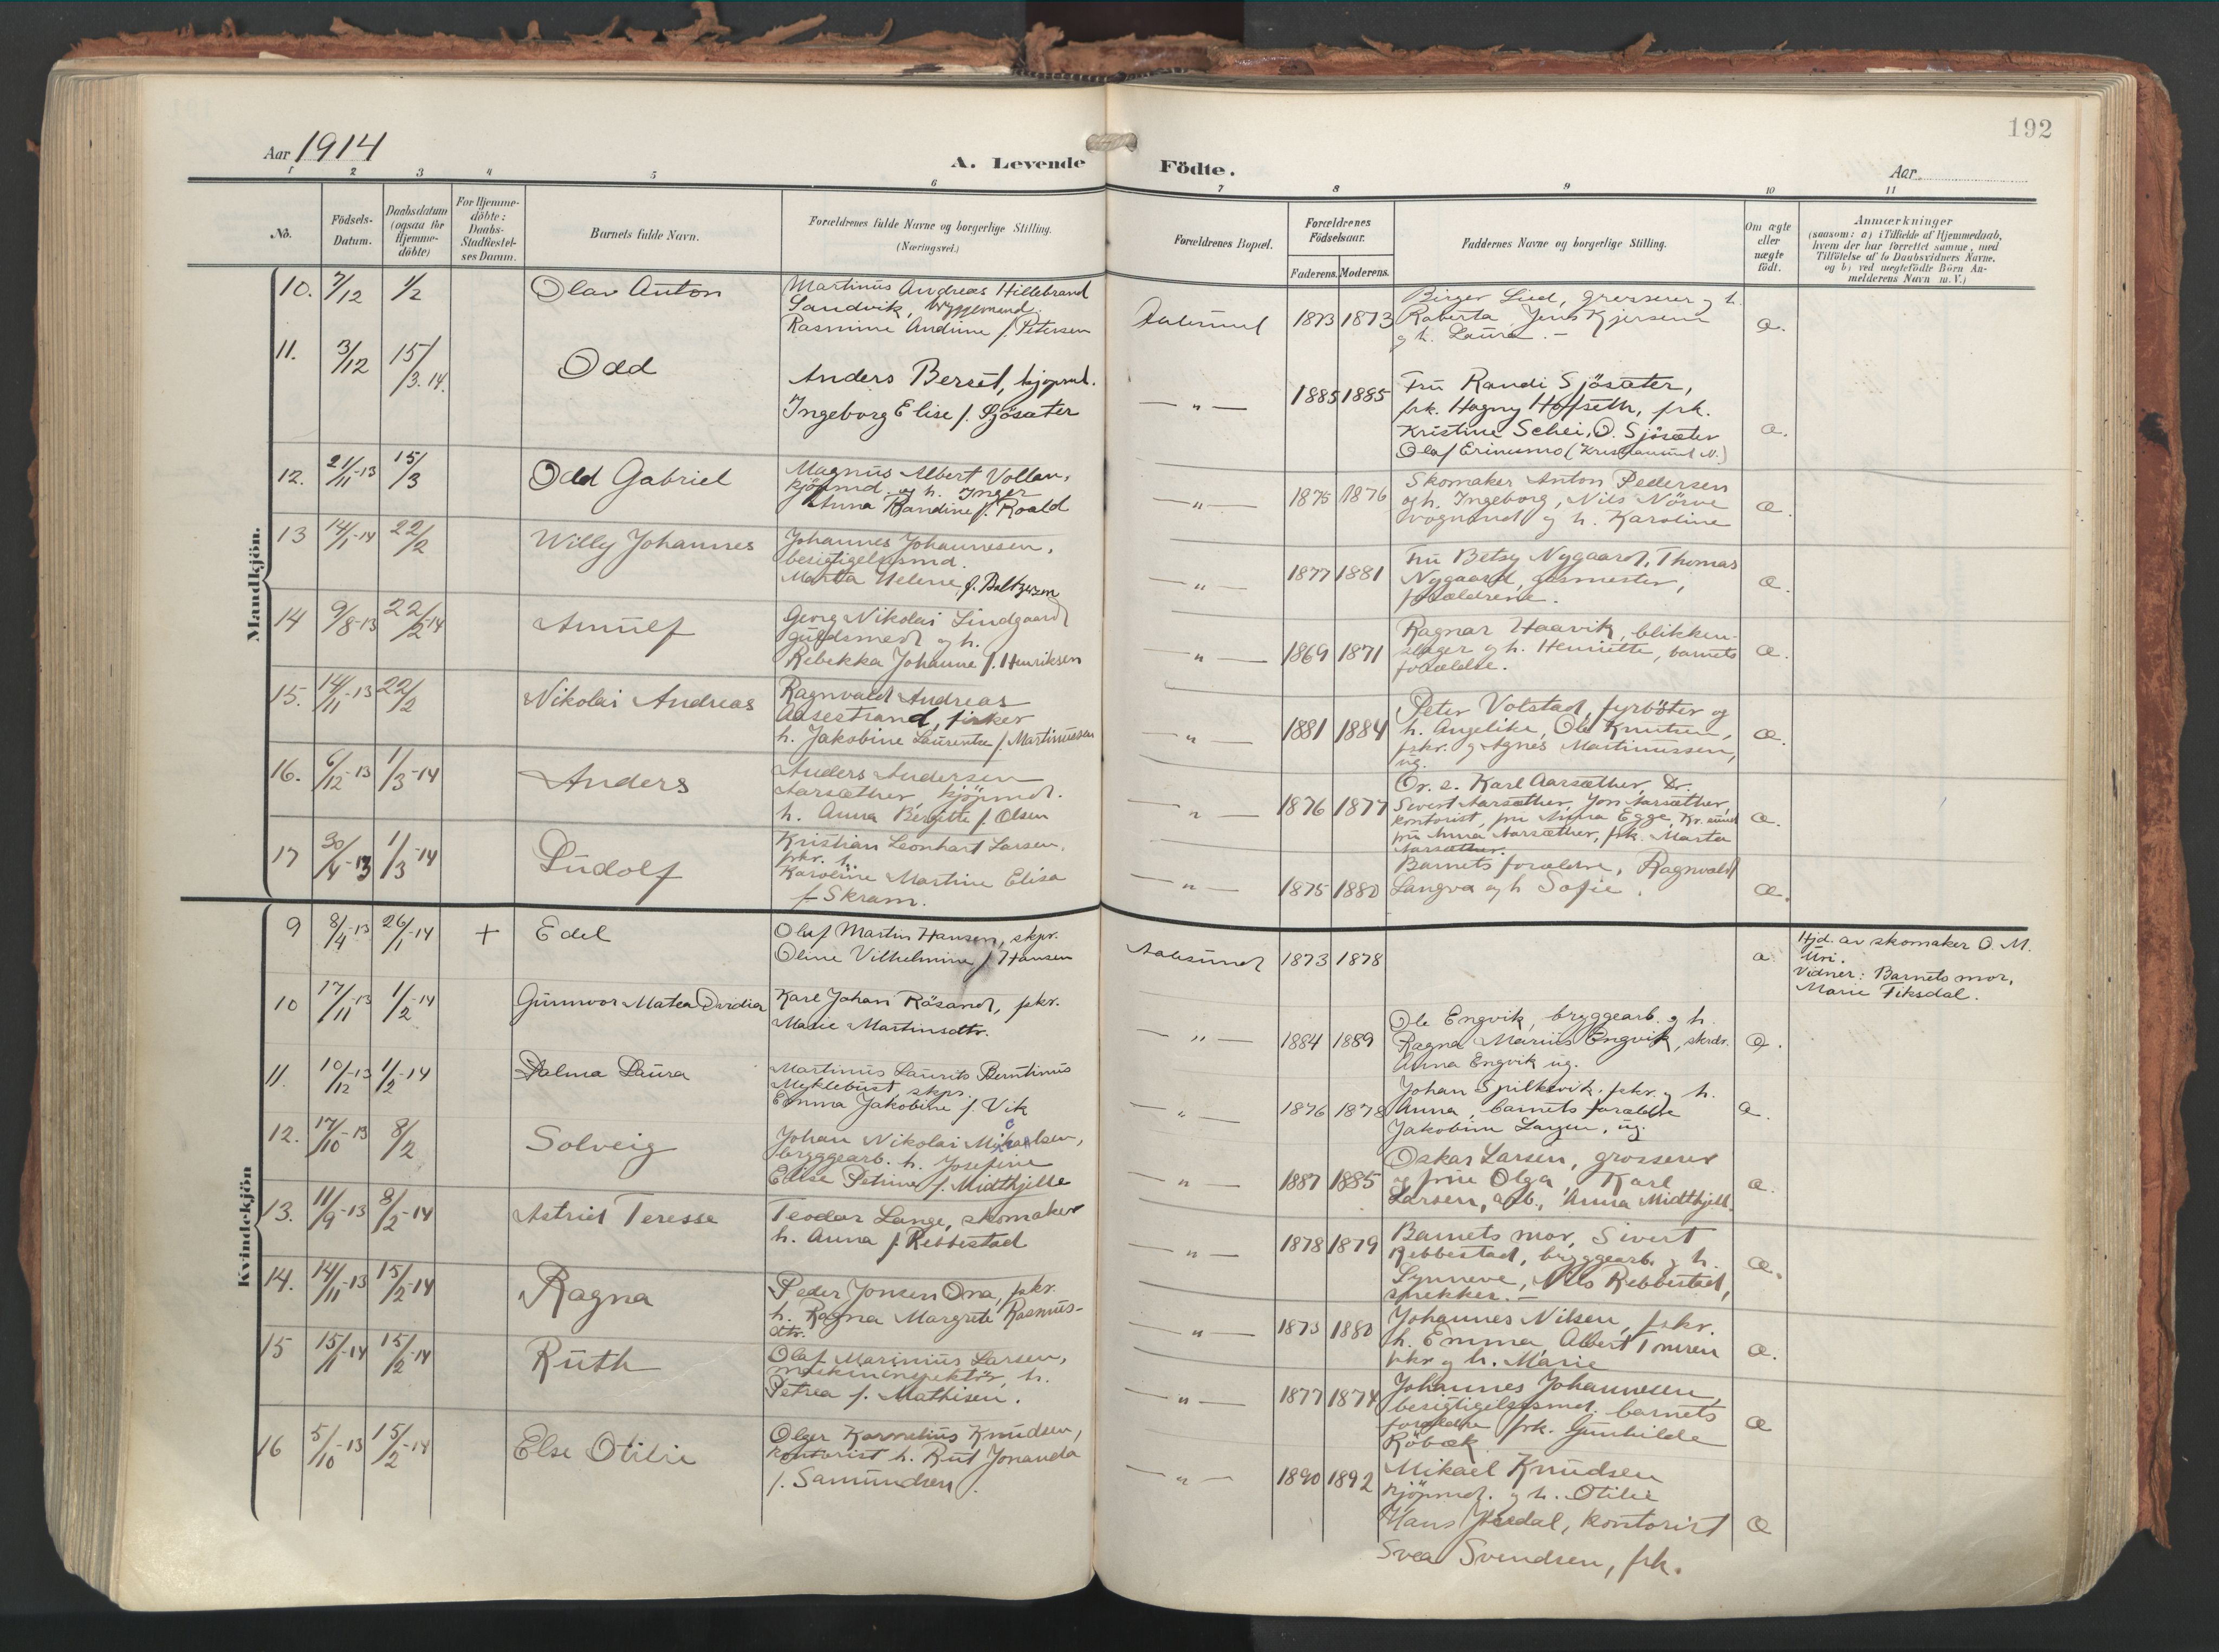 192
Aar 1914
A. Levende Födte.
Aar
1 2 3 4 5 6 7 8 9 10 11
No.
Födsels-Datum.
Daabsdatum (ogsaa for Hjemme-döbte)
For Hjemme-döbte: Daabs-Stadfæstel-ses Datum.
Barnets fulde Navn.
Forældrenes fulde Navne og borgerlige Stilling. (Næringsvei.)
Forældrenes Bopæl.
Forældrenes Födselsaar.
Faderens. Moderens.
Faddernes Navne og borgerlige Stilling.
Om ægte eller uægte födt.
Anmærkninger
(saasom: a) i Tilfælde af Hjemmedaab,
hvem der har forrettet samme, med
Tilföielse af to Daabsvidners Navne,
og b) ved uægtefödte Börn An-
melderens Navn m. V.)
Mandkjön.
10. 7/12 1/2 Olav Anton
Martinus Andreas Hillebrand
Sandvik, byggemand.
Rasmine Andrine f. Petersen
Aalesund 1873 1873
Birger Lied, grosserer og h.
Roberta Jens Kjersem
og h. Laura. —
æ.
11. 3/12 15/3.14. Odd
Anders Berset, kjøpmd.
Ingeborg Elise f. Sjösæter
— " — 1885 1885
Fru Randi Sjösæter,
frk. Hagny Hofseth, frk.
Kristine Schei, O. Sjösæter
Olaf Erinsmo (Kristiansund N.)
æ.
12. 21/11-13 15/3 Odd Gabriel
Magnus Albert Vollan,
kjöpmd. og h. Inger
Anna Randine f. Roald
— " — 1875 1876
Skomaker Anton Pedersen
og h. Ingeborg, Nils Nörve
vognmand og h. Karoline
æ.
13 14/1-14 22/2 Willy Johannes
Johannes Johannesen,
besigtigelsesmd.
Marta Helene f. Baltzersen
— " — 1877 1881
Fru Betsy Nygaard, Thomas
Nygaard, gasmester,
forældrene.
æ.
14 9/8-13 22/2-14 Arnulf
Georg Nikolai Lindgaard
guldsmed og h.
Rebekka Johanne f. Henriksen
— " — 1869 1871
Ragnar Haavik, blikken-
slager og h. Henriette, barnets
forældre.
æ.
15. 14/11-13 22/2 Nikolai Andreas
Ragnvald Andreas
Aasestrand, fisker
h. Jakobine Laurentse f. Martinussen
— " — 1881 1884
Peter Volstad, fyrböter og
h. Angelike, Ole Knutsen,
fskr. og Agnes Martinussen,
ug.
æ.
16. 6/12-13 1/3-14 Anders
Anders Andersen
Aarsæther, kjöpmd.
h. Anna Bergitte f. Olsen
— " — 1876 1877
Or. s. Karl Aarsæther, Dr.
Sivert Aarsæther, Jon Aarsæther,
kontorist, fru Anna Egge, Kr.sund
fru Anna Aarsæther, frk. Marta
Aarsæther.
æ.
17 30/4-13 1/3-14 Ludolf
Kristian Leonhart Larsen,
fskr. h.
Karoline Martine Elisa
f. Skram.
— " — 1875 1880
Barnets forældre, Ragnvald
Langva og h. Sofie.
æ.
Kvindekjön
9 8/4-13 26/1-14 + Edel
Oluf Martin Hansen, skpr.
Oline Vilhelmine f. Hansen
Aalesund 1873 1878
æ
Hjd. av skomaker O. M.
Uri.
Vidner: Barnets mor,
Marie Fiksdal.
10 17/11-13 1/2-14 Gunnvor Matea Dardia
Karl Johan Räsand, fskr.
Marie Martinsdtr.
— " — 1884 1889
Ole Engvik, bryggearb. og h.
Ragna Marius Engvik, skrdr.
Anna Engvik ug.
æ.
11. 10/12-13 1/2-14 Palma Laura
Martinus Laurits Berntinus
Myklebust, skpr.
Emma Jakobine f. Vik
— " — 1876 1878
Johan Spilkevik, fskr. og h.
Anna, barnets forældre
Jakobine Larsen, ug.
æ.
12. 17/10-13 8/2 Solveig
Johan Nikolai Mikaelsen,
bryggearb. h. Josefine
Elise Petrine f. Midtkjelle
— " — 1887 1885
Oskar Larsen, grosserer
og frue Olga, Karl
Larsen, arb., Anna Midtkjell.
æ.
13. 11/9-13 8/2-14 Astrid Teresse
Teodor Lange, skomaker
h. Anna f. Rebbestad
— " — 1878 1879
Barnets mor, Sivert
Rebbestad, bryggearb. og h.
Synneve, Nils Rebbestad,
snekker. —
æ.
14. 14/11-13 15/2-14 Ragna
Peder Jonsen Ona, fskr.
h. Ragna Margrete Rasmus-
dtr.
— " — 1873 1880
Johannes Nilsen, fskr.
h. Emma, Albert Iversen
fskr og h. Marie
æ.
15 15/1-14 15/2-14 Ruth
Olaf Marinius Larsen,
maskininspektör, h.
Petrea f. Mathisen.
— " — 1877 1874
Johannes Johannesen,
besigtigelsesmd. barnets
forældre frk. Gunhilde
Röbæk.
æ
16 5/10-13 15/2-14 Else Otilie
Olger Kornelius Knudsen,
kontorist h. Rut Jonanda
f. Samundsen.
— " — 1890 1892
Mikael Knudsen
kjöpmd. og h. Otilie
Hans Jendal, kontorist
Svea Svendsen, frk.
æ